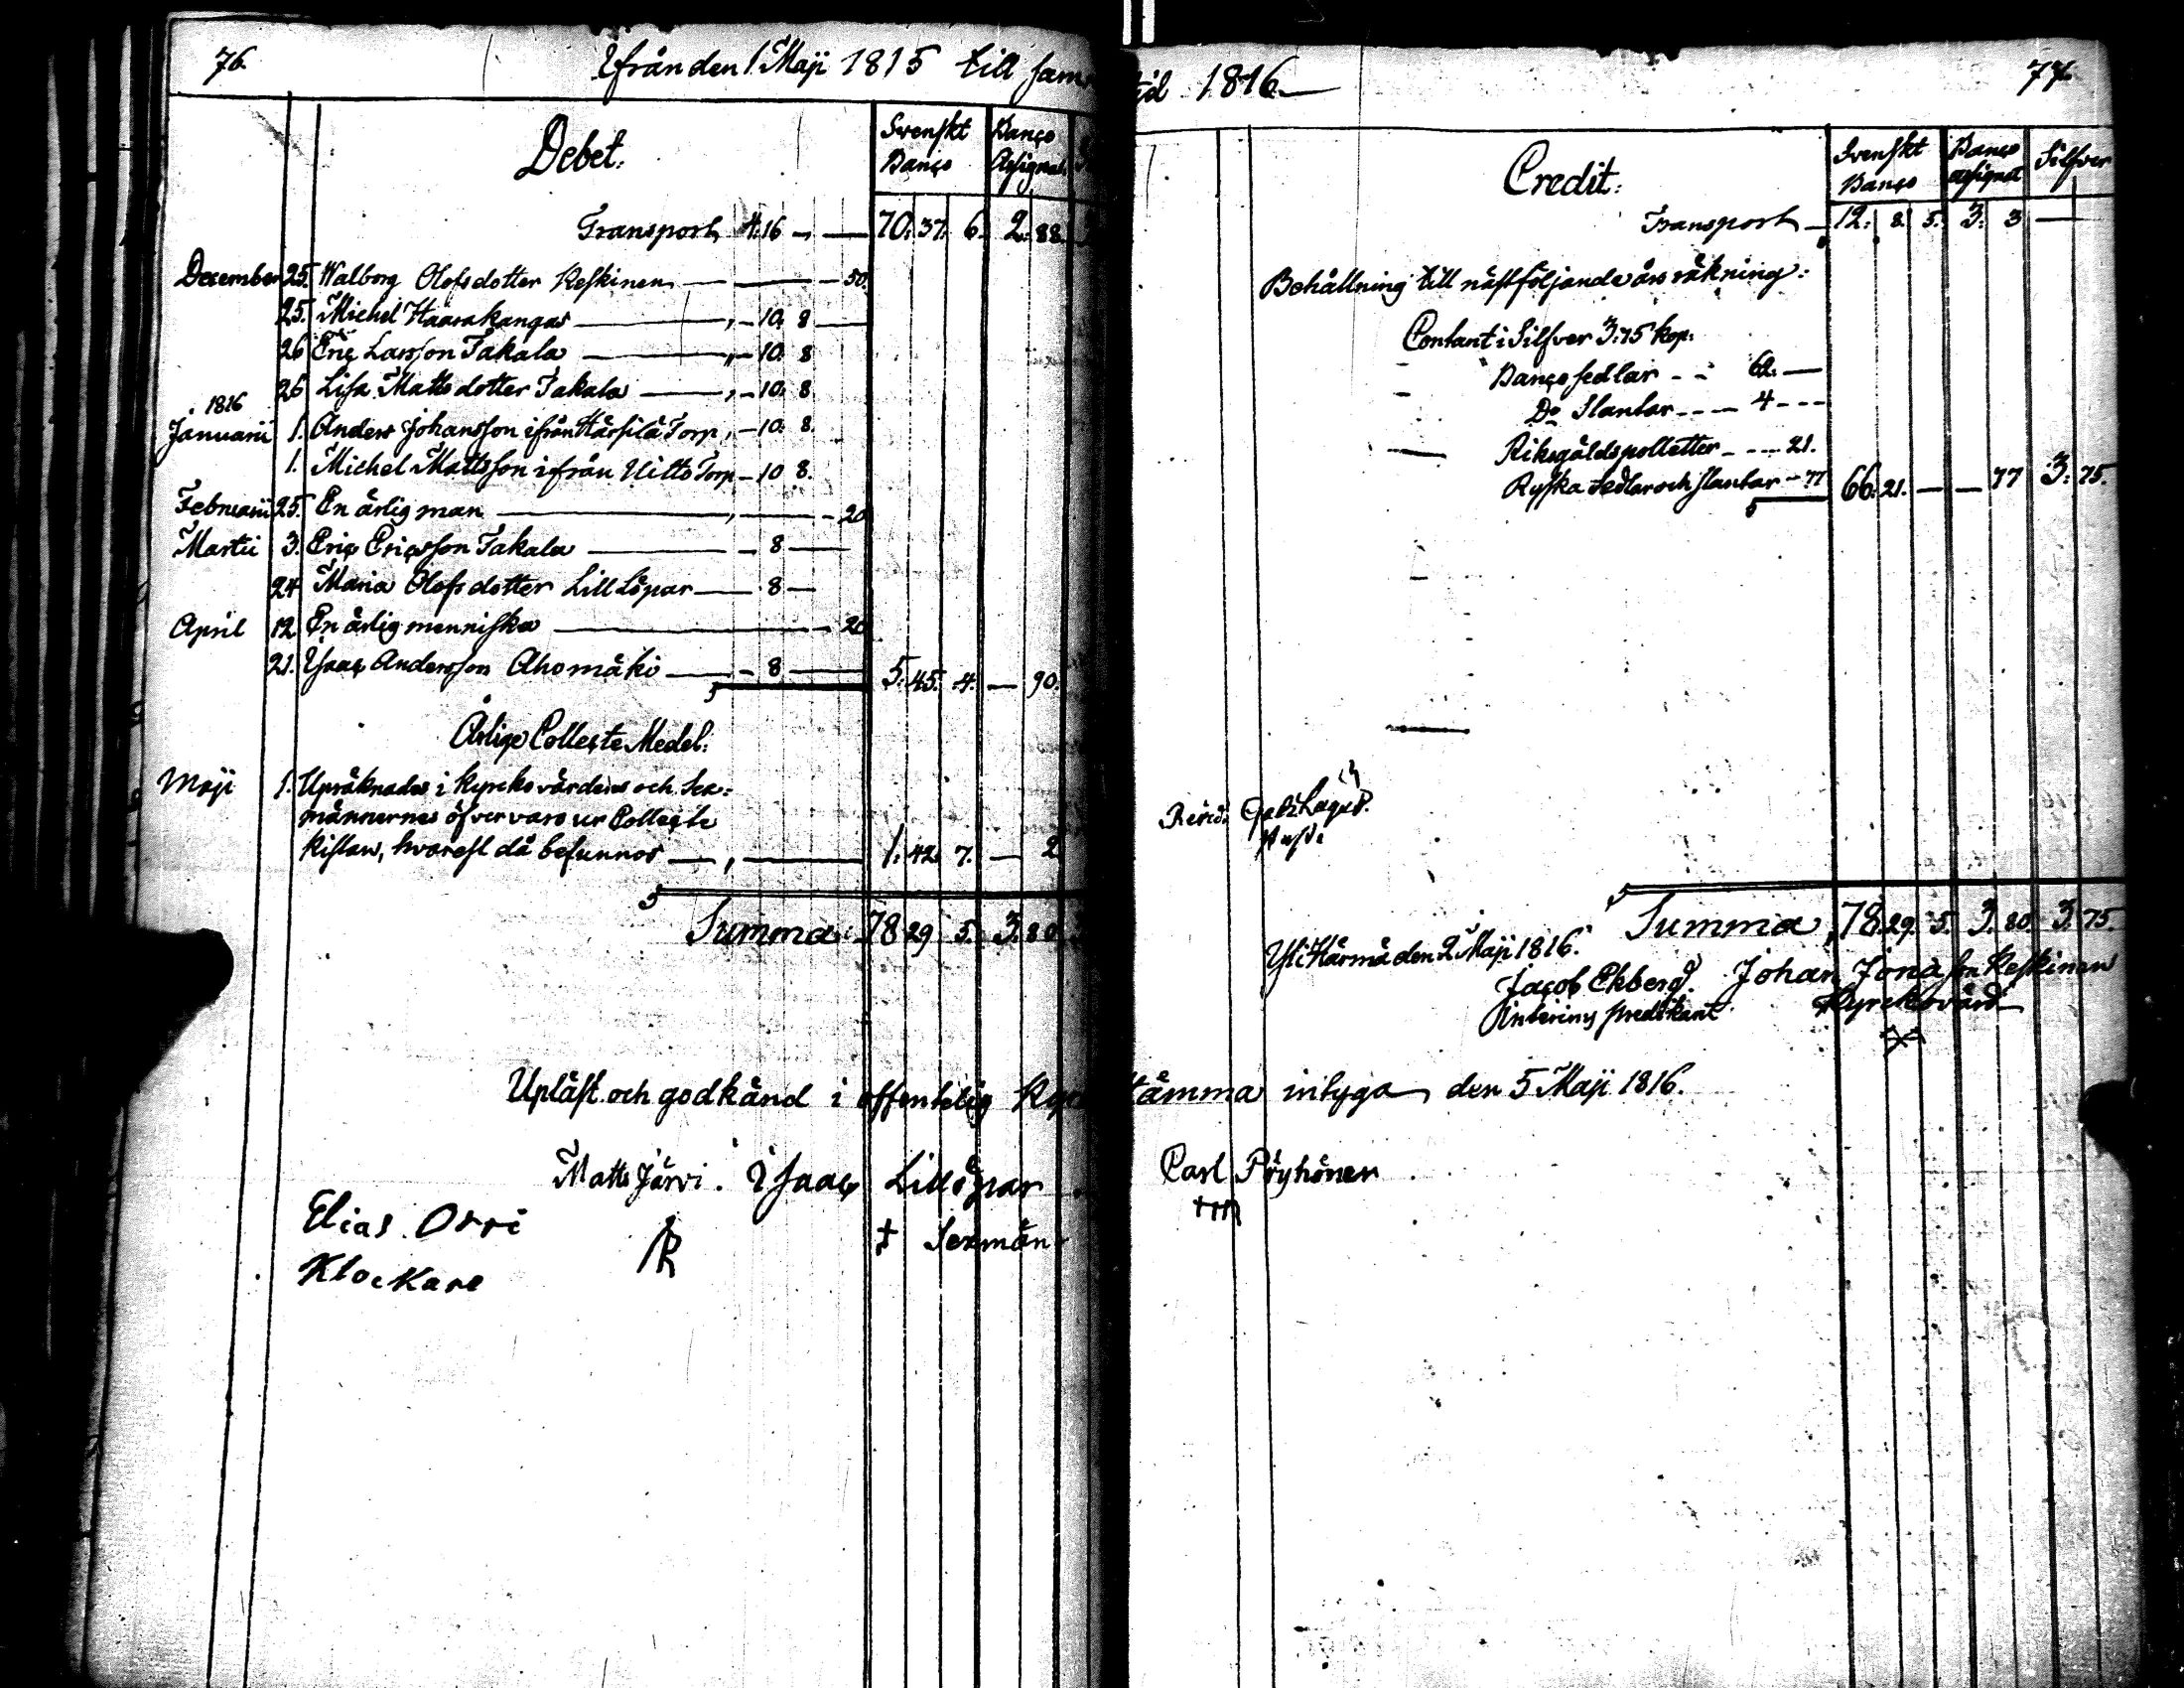 76.
Ifrån den 1 Maji 1815 till sam
Debet.
Svenskt Banço
Banço Assignat.
Transport 4:16 — — 70: 37. 6. 2: 88.
December 25. Walborg Olofsdotter Keskinen — — — 50.
25. Michel Haarakangas — " — 10: 8 —
26 Eriç Larsson Takala — " — 10: 8
26 Lisa Mattsdotter Takala — " — 10: 8
1816
Januarii 1. Anders Johansson ifrån Härsilä Torp, — 10: 8.
1. Michel Mattsson ifrån Uitto Torp — 10 8.
Februarii 25. En ärlig man — — — 20
Martii 3. Eriç Eriçsson Takala — — 8 —
24 Maria Olofsdotter Lill Löpar — 8 —
April 12. En ärlig menniska — — 20
21. Isaaç Andersson Ahomäki — — 8 — 5: 45. 4. — 90.
Årlige Colleçte Medel:
Maji 1. Upräknades i Kyrckovärdens och Sex-
männernes öfvervaro ur Colleçte
kistan, hvarest då befunnos — , — 1: 42. 7. — 2
Summa 78 29 5. 3. 80
Upläst och godkänd i offentelig Kyr
Matts Järvi. Isaaç Lillöpar
Elias Orri
Klockare
‡ Sexmän
tid 1816.
77.
Credit:
Svenskt Banço
Banço assignat
Silfver
Transport — 12: 8. 5. 3: 3 —
Behållning till nästföljande års räkning:
Contant i Silfver 3:75 kop.
Banço sedlar - - 62: —
Do Slantar - - - 4 - - -
Riksgäldspolletter - - - 21.
Ryska Sedlar och slantar - 77 66: 21. — — 77 3: 75.
Summa 78. 29. 5. 3. 80. 3. 75.
Yli Härmä den 2 Maji 1816.
Jaçob Ekberg. Johan Jonasson Keskinen
Interims predikant Kyrckovärd
stämma intyga den 5 Maji 1816.
Carl Pöyhönen